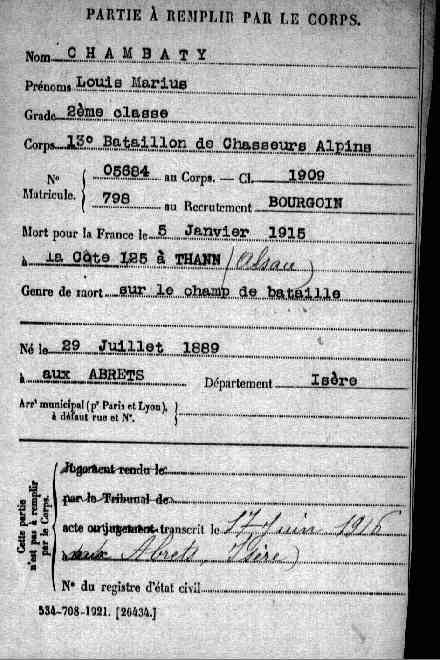 PARTIE À REMPLIR PAR LE CORPS.
Nom CHAMBATY
Prénoms Louis Marius
Grade 2ème classe
Corps 13° Bataillon de Chasseurs Alpins
N° Matricule. 05684 au Corps. — Cl. 1909
798 au Recrutement BOURGOIN
Mort pour la France le 5 Janvier 1915
à la Côte 125 à THANN (Alsace)
Genre de mort sur le champ de bataille
Né le 29 Juillet 1889
à aux ABRETS Département Isère
Arrᵗ municipal (pʳ Paris et Lyon),
à défaut rue et N°.
Cette partie n'est pas à remplir par le Corps.
Jugement rendu le
par le Tribunal de
acte ou jugement transcrit le 17 Juin 1916
aux Abrets, Isère)
N° du registre d'état civil
534-708-1921. [26434.]